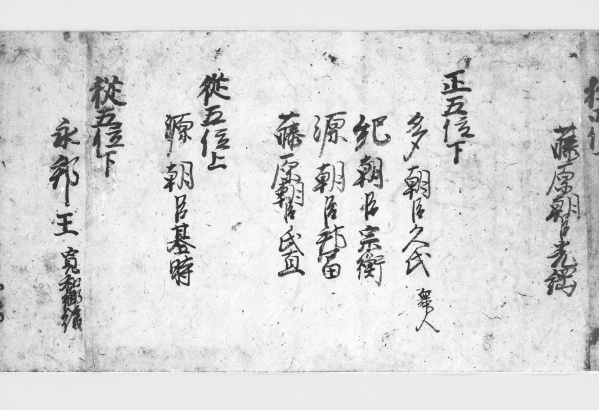 藤原朝臣光綱
正五位下
多朝臣久氏 舞人
紀朝臣宗衡
源朝臣
藤原朝臣氏直
従五位上
源朝臣基時
従五位下
永郷王 寛和御後